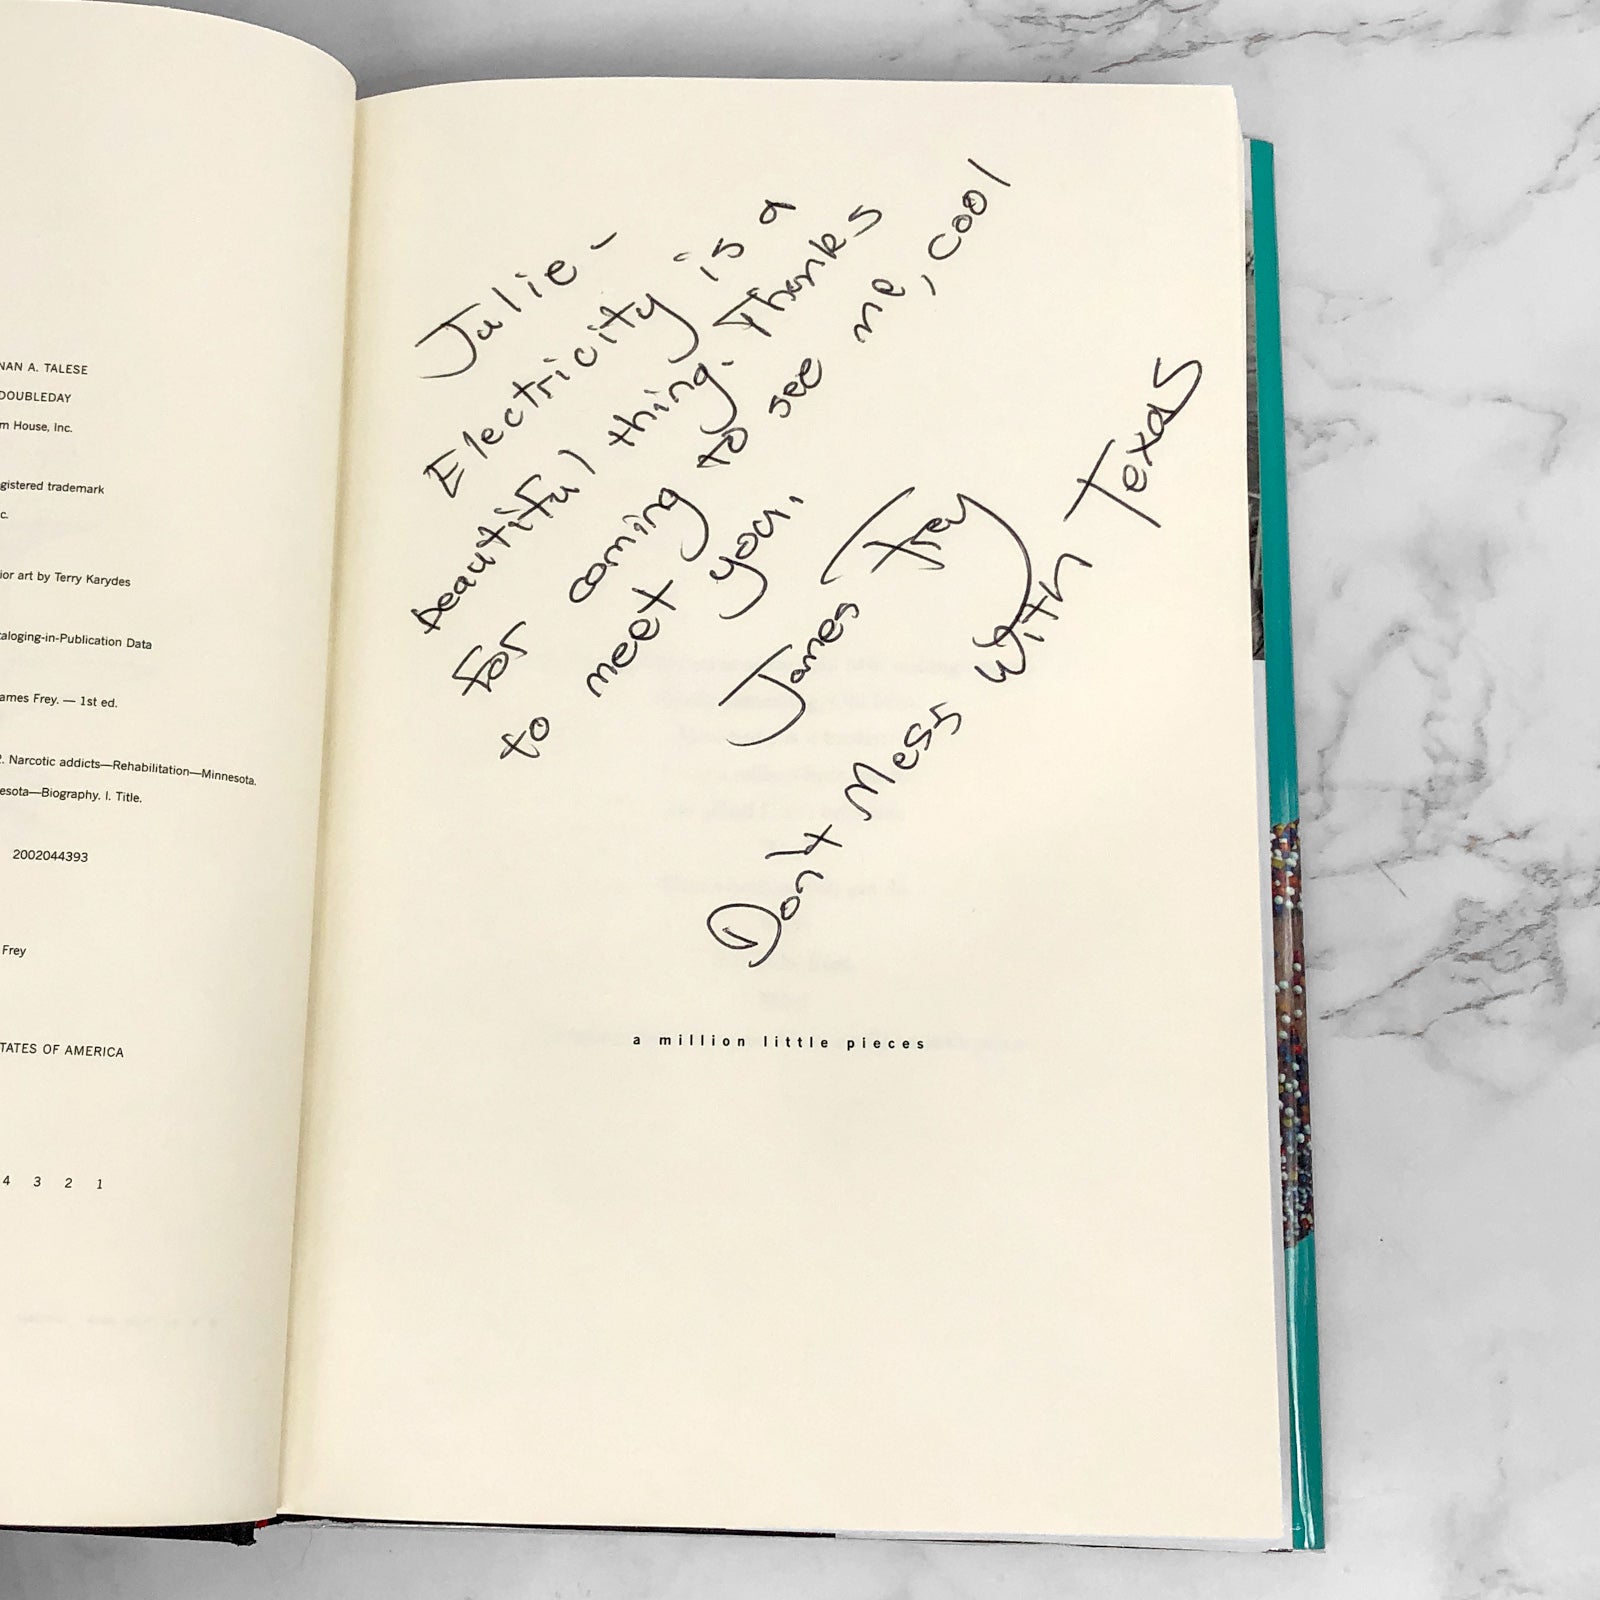 NAN A. TALESE
DOUBLEDAY
m House, Inc.
gistered trademark
c.
ior art by Terry Karydes
taloging-in-Publication Data
ames Frey. — 1st ed.
2. Narcotic addicts—Rehabilitation—Minnesota.
esota—Biography. I. Title.
2002044393
Frey
TATES OF AMERICA
4 3 2 1
Julie –
Electricity is a
beautiful thing. Thanks
for coming to see me, cool
to meet you,
James Frey
Don't Mess With Texas
a million little pieces